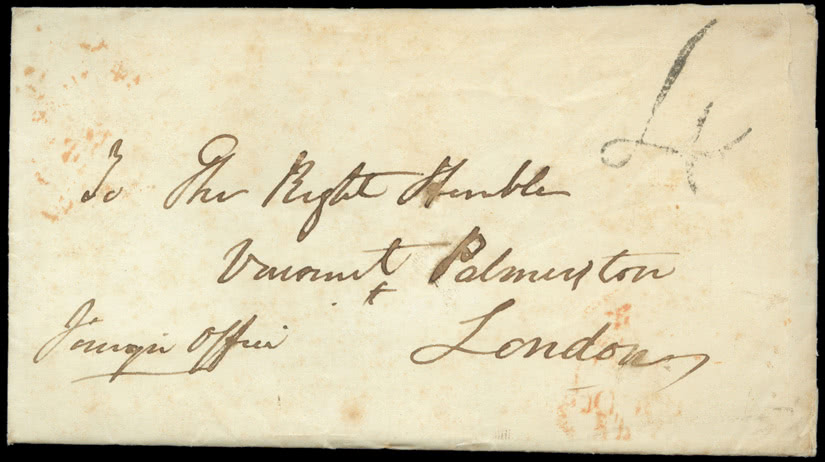 4
To The Right Honble
Viscount Palmerston
Foreign Office
London